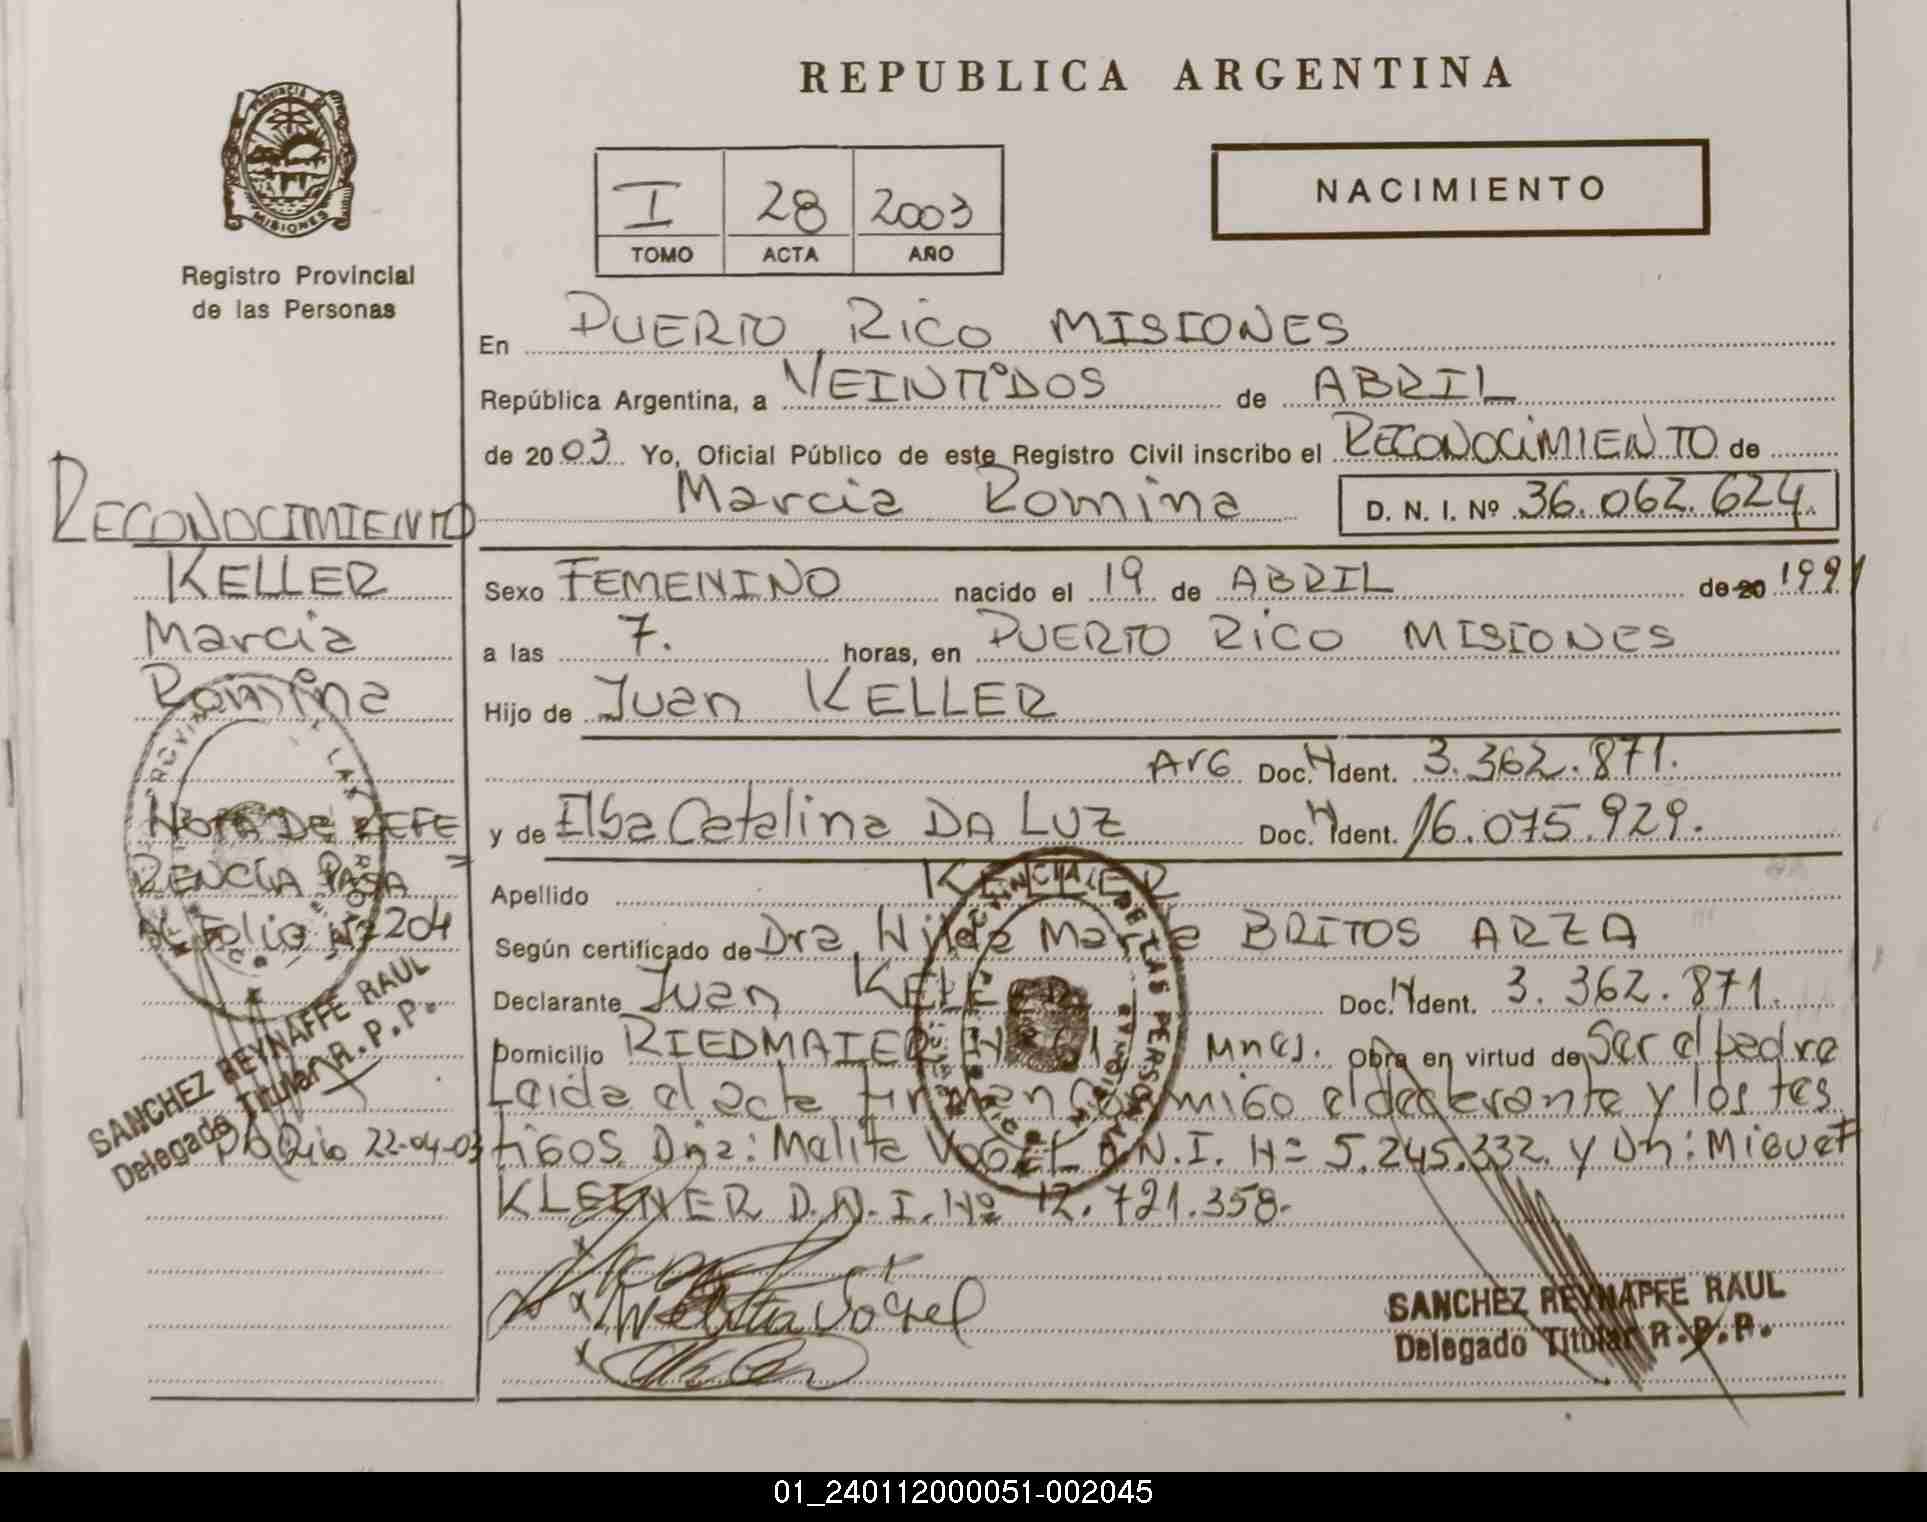 REPUBLICA ARGENTINA
PROVINCIA DE
MISIONES
Registro Provincial
de las Personas
I 28 2003
TOMO ACTA AÑO
NACIMIENTO
En PUERTO RICO MISIONES
República Argentina, a VEINTIDOS de ABRIL
de 2003 Yo, Oficial Público de este Registro Civil inscribo el RECONOCIMIENTO de
Marcia Romina D. N. I. Nº 36.062.624.
Sexo FEMENINO nacido el 19 de ABRIL de 20 1991
a las 7. horas, en PUERTO RICO MISIONES
Hijo de Juan KELLER
ARG Doc. Ident. 3.362.871.
y de Elba Catalina DA LUZ Doc. Ident. 16.075.929.
Apellido KELLER
Según certificado de Dra Nilda Marta BRITOS ARZA
Declarante Juan KELLER Doc. Ident. 3.362.871.
Domicilio RIEDMAIER Mnes. Obra en virtud de Ser el padre
Leida el acta firman conmigo el declarante y los tes
tigos Dña: Melita VOGEL D.N.I. Nº 5.245.332. y Dn: Miguel
KLEINER D.N.I. Nº 12.721.358.-
SANCHEZ REYNAFFE RAUL
Delegado Titular R.P.P.
RECONOCIMIENTO
KELLER
Marcia
Romina
NOTA DE REFE
RENCIA PASA
AL Folio Nº 204
SANCHEZ REYNAFFE RAUL
Delegado Titular R.P.P.
Pto Rico 22-04-03
01_240112000051-002045